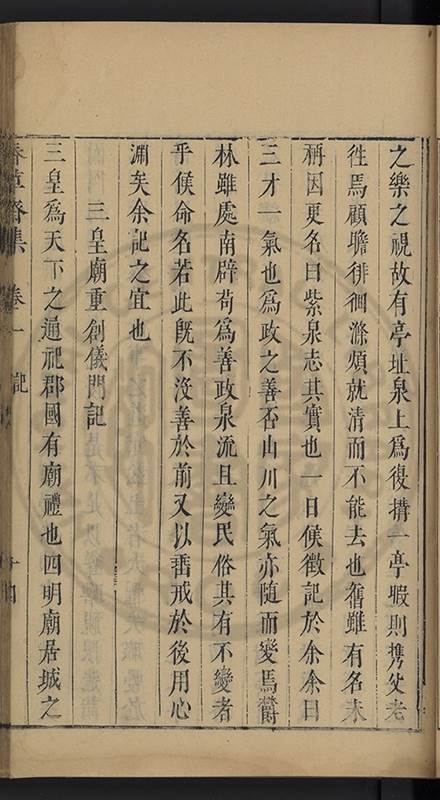 之樂之視故有亭址泉上爲復搆一亭暇則携父老
徃焉顧瞻徘徊滌煩就清而不能去也舊雖有名未
稱因更名曰紫泉志其實也一日侯徵記於余余曰
三才一氣也爲政之善否山川之氣亦随而變焉欝
林雖處南辟苟爲善政泉流且變民俗其有不變者
乎侯命名若此旣不沒善於前又以垂戒於後用心
淵矣余記之宜也
三皇廟重創儀門記
三皇爲天下之通祀郡國有廟禮也四明廟居城之
卷一 記